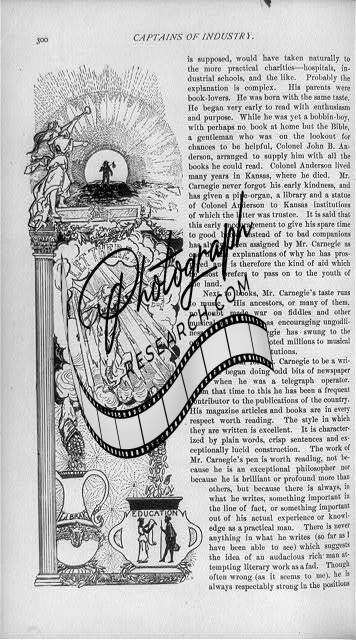 300
CAPTAINS OF INDUSTRY.
is supposed, would have taken naturally to
the more practical charities—hospitals, in-
dustrial schools, and the like. Probably the
explanation is complex. His parents were
book-lovers. He was born with the same taste.
He began very early to read with enthusiasm
and purpose. While he was yet a bobbin-boy,
with perhaps no book at home but the Bible,
a gentleman who was on the lookout for
chances to be helpful, Colonel John B. An-
derson, arranged to supply him with all the
books he could read. Colonel Anderson lived
many years in Kansas, where he died. Mr.
Carnegie never forgot his early kindness, and
has given a pipe-organ, a library and a statue
of Colonel Anderson to Kansas institutions
of which the latter was trustee. It is said that
this early encouragement to give his spare time
to good books instead of to bad companions
has also been assigned by Mr. Carnegie as
explanations of why he has pros-
is therefore the kind of aid which
to pass on to the youth of
the land.
Next to books, Mr. Carnegie's taste runs
to music. His ancestors, or many of them,
no doubt made war on fiddles and other
as encouraging ungodli-
has swung to the
millions to musical
Carnegie to be a wri-
began doing odd bits of newspaper
when he was a telegraph operator.
From that time to this he has been a frequent
contributor to the publications of the country.
His magazine articles and books are in every
respect worth reading. The style in which
they are written is excellent. It is character-
ized by plain words, crisp sentences and ex-
ceptionally lucid construction. The work of
Mr. Carnegie's pen is worth reading, not be-
cause he is an exceptional philosopher nor
because he is brilliant or profound more than
others, but because there is always, in
what he writes, something important in
the line of fact, or something important
out of his actual experience or knowl-
edge as a practical man. There is never
anything in what he writes (so far as I
have been able to see) which suggests
the idea of an audacious rich man at-
tempting literary work as a fad. Though
often wrong (as it seems to me), he is
always respectably strong in the positions
EDUCATION
Photograph
RESEARCH.COM